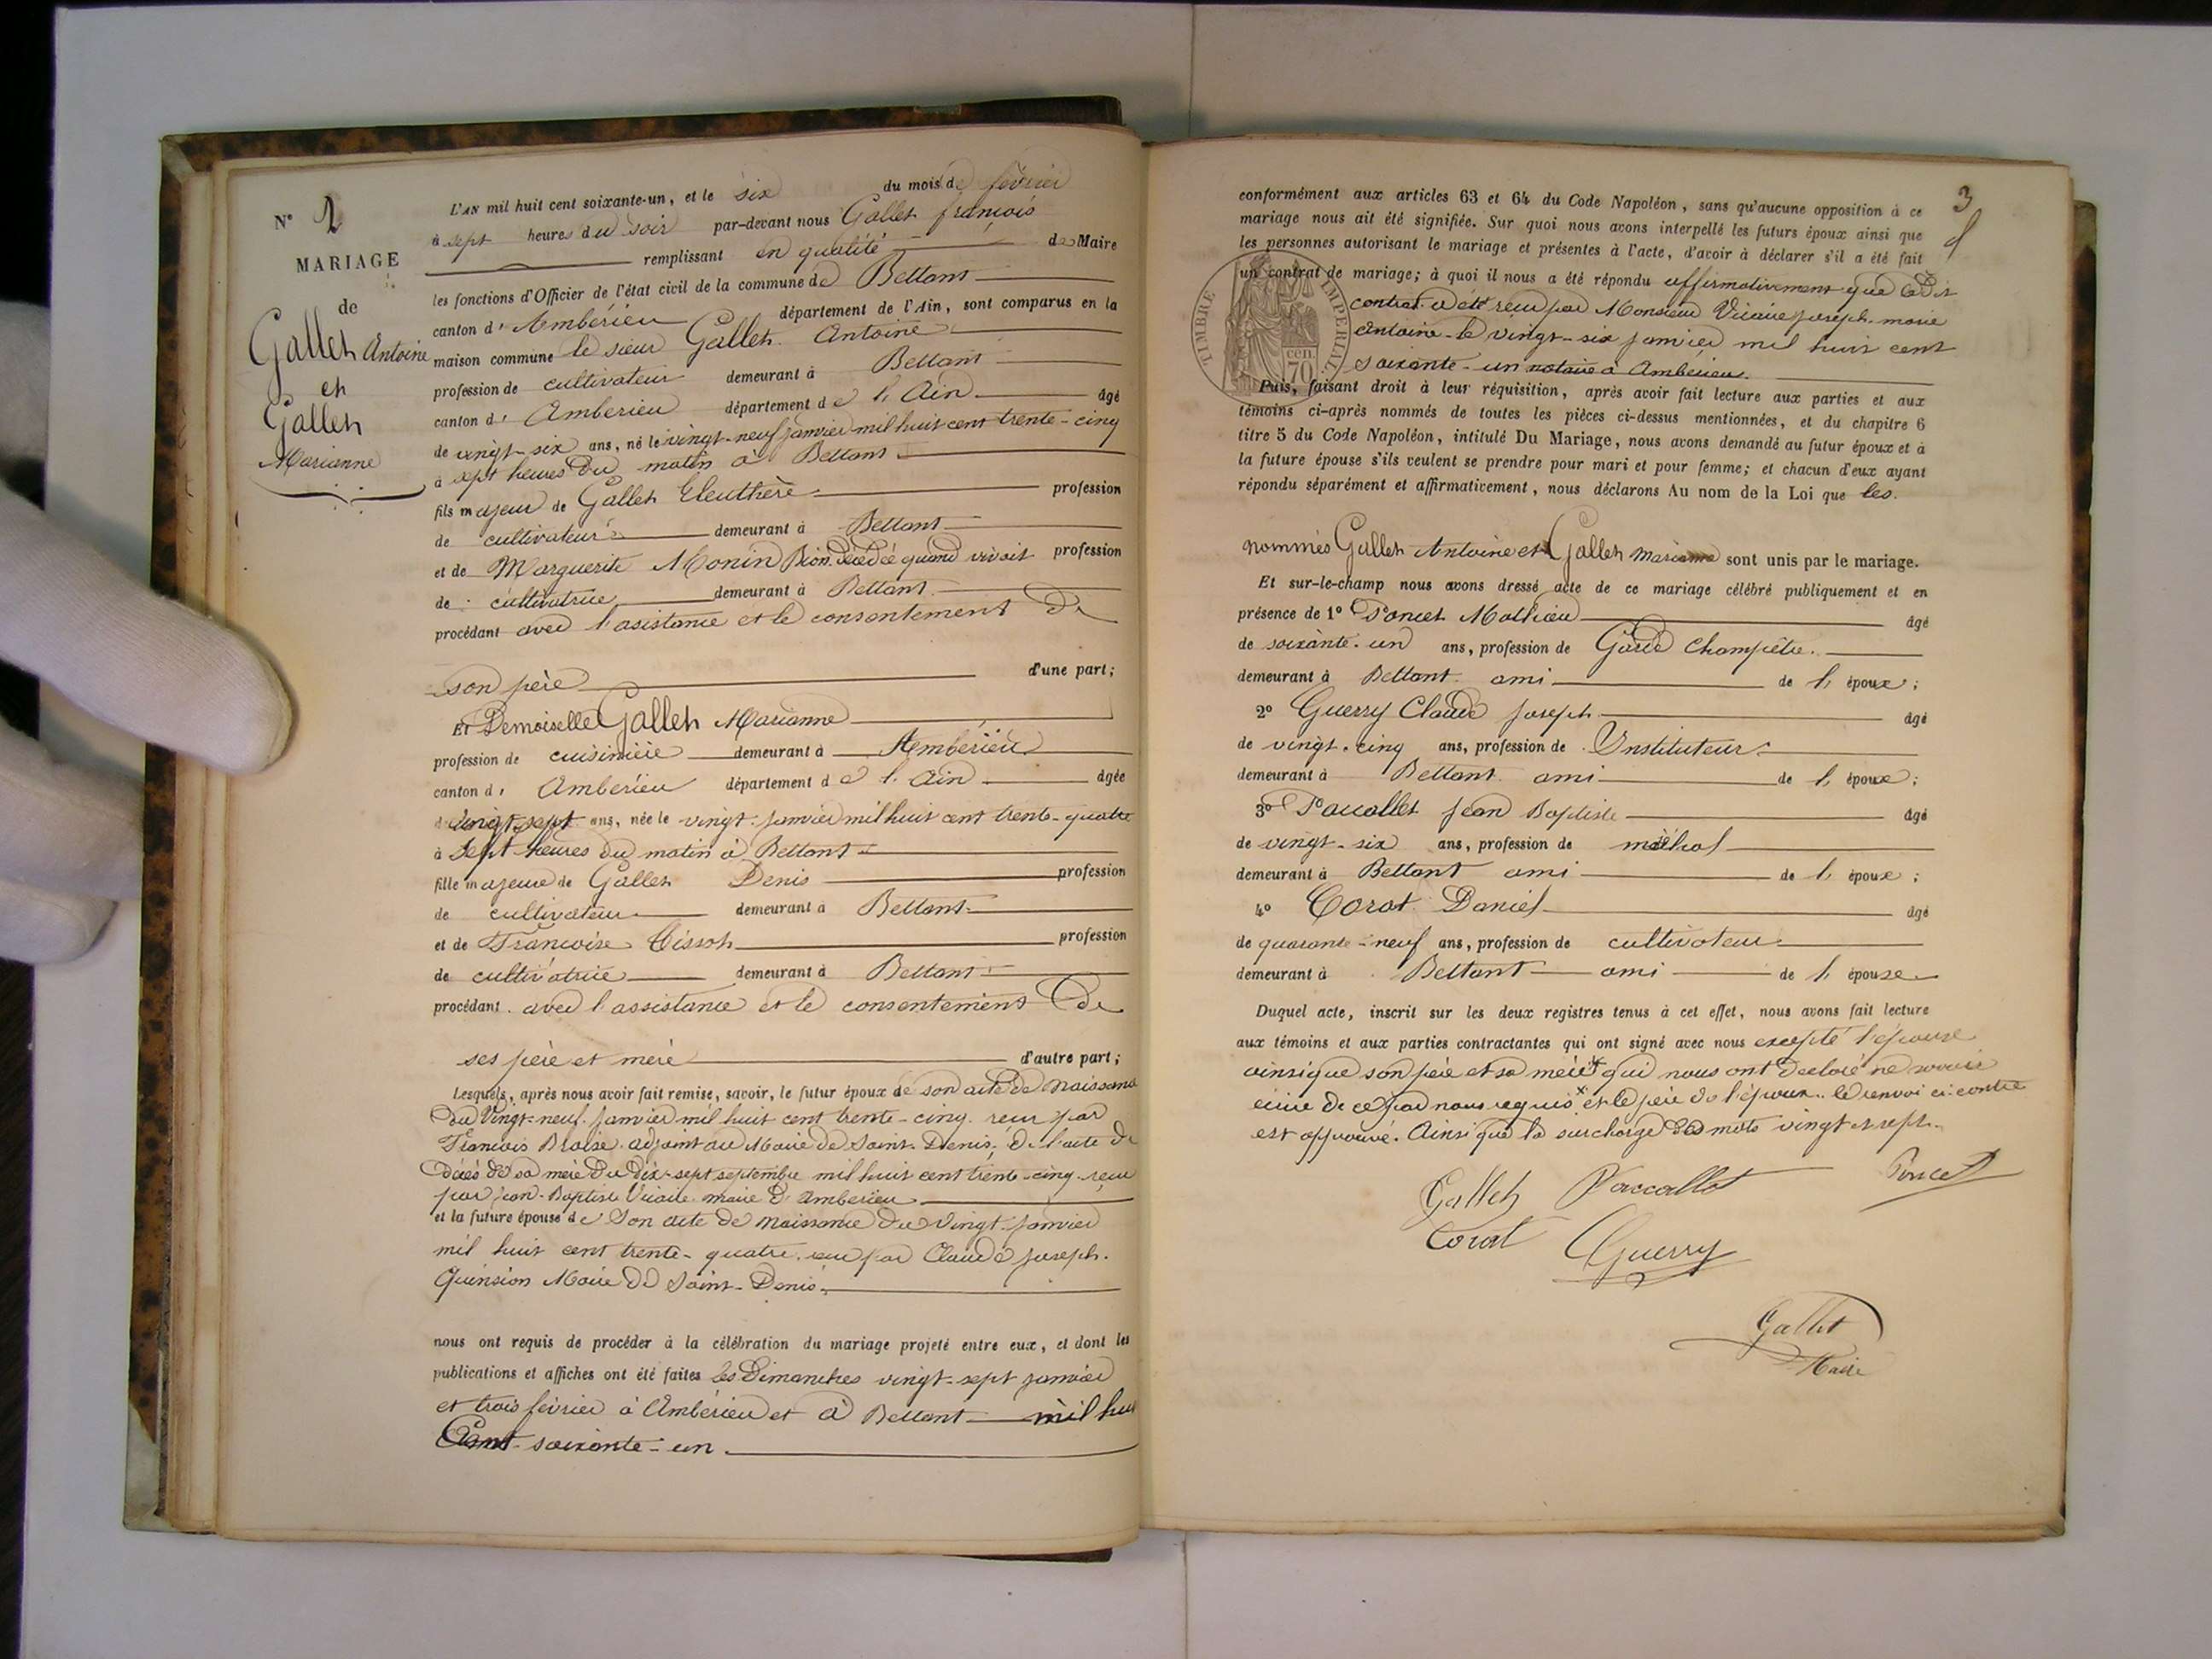 N° 2
MARIAGE
de
Gallet Antoine
et
Gallet
Marianne
L'AN mil huit cent soixante-un, et le six du mois de février
à sept heures du soir par-devant nous Gallet françois
remplissant en qualité de Maire
les fonctions d'Officier de l'état civil de la commune de Bettant
canton d' Ambérieu département de l'Ain, sont comparus en la
maison commune le sieur Gallet Antoine
profession de cultivateur demeurant à Bettant
canton d' Amberieu département de l'Ain âgé
de vingt-six ans, né le vingt-neuf janvier mil huit cent trente-cinq
à sept heures du matin à Bettant
fils majeur de Gallet Eleuthère profession
de cultivateur demeurant à Bettant
et de Marguerite Monin Bion décédée quand vivait profession
de cultivatrice demeurant à Bettant
procédant avec l'asistance et le consentement de
son père d'une part;
Et Demoiselle Gallet Marianne
profession de cuisinière demeurant à Ambérieu
canton d' Ambérieu département de l'Ain âgée
de vingt-sept ans, née le vingt janvier mil huit cent trente-quatre
à sept heures du matin à Bettant
fille majeure de Gallet Denis profession
de cultivateur demeurant à Bettant
et de Françoise Tissot profession
de cultivatrice demeurant à Bettant
procédant avec l'assistance et le consentement de
ses père et mère d'autre part;
Lesquels, après nous avoir fait remise, savoir, le futur époux de son acte de naissance
du vingt-neuf janvier mil huit cent trente-cinq reçu par
François Blaise adjoint au Maire de Saint-Denis, de l'acte de
décès de sa mère du dix-sept septembre mil huit cent trente-cinq reçu
par jean-Baptiste Vicaire maire d'Amberieu
et la future épouse de son acte de naissance du vingt janvier
mil huit cent trente-quatre reçu par Claude joseph
Quinsion Maire de Saint-Denis
nous ont requis de procéder à la célébration du mariage projeté entre eux, et dont les
publications et affiches ont été faites les Dimanches vingt-sept janvier
et trois février à Ambérieu et à Bettant mil huit
Cent soixante-un
3
conformément aux articles 63 et 64 du Code Napoléon, sans qu'aucune opposition à ce
mariage nous ait été signifiée. Sur quoi nous avons interpellé les futurs époux ainsi que
les personnes autorisant le mariage et présentes à l'acte, d'avoir à déclarer s'il a été fait
un contrat de mariage; à quoi il nous a été répondu affirmativement que ledit
contrat a été reçu par Monsieur Vicaire joseph marie
antoine le vingt-six janvier mil huit cent
soixante-un notaire à Ambérieu.
TIMBRE IMPERIAL
70 cen.
Puis, faisant droit à leur réquisition, après avoir fait lecture aux parties et aux
témoins ci-après nommés de toutes les pièces ci-dessus mentionnées, et du chapitre 6
titre 5 du Code Napoléon, intitulé Du Mariage, nous avons demandé au futur époux et à
la future épouse s'ils veulent se prendre pour mari et pour femme; et chacun d'eux ayant
répondu séparément et affirmativement, nous déclarons Au nom de la Loi que les
nommés Gallet Antoine et Gallet marianne sont unis par le mariage.
Et sur-le-champ nous avons dressé acte de ce mariage célébré publiquement et en
présence de 1° Poncet Mathieu âgé
de soixante-un ans, profession de Garde Champêtre
demeurant à Bettant ami de l' époux;
2° Guerry Claude joseph âgé
de vingt-cinq ans, profession de Instituteur
demeurant à Bettant ami de l' époux;
3° Paccallet jean Baptiste âgé
de vingt-six ans, profession de
demeurant à Bettant ami de l' époux;
4° Corat Daniel âgé
de quarante-neuf ans, profession de cultivateur
demeurant à Bettant ami de l' épouse
Duquel acte, inscrit sur les deux registres tenus à cet effet, nous avons fait lecture
aux témoins et aux parties contractantes qui ont signé avec nous excepté l'épouse
ainsi que son père et sa mère qui nous ont déclaré ne savoir
écrire de ce par nous requis et le père de l'époux. le renvoi ci-contre
est approuvé. Ainsi que la surcharge des mots vingt et sept.
Gallet Paccallet Poncet
Corat Guerry
Gallet
Maire